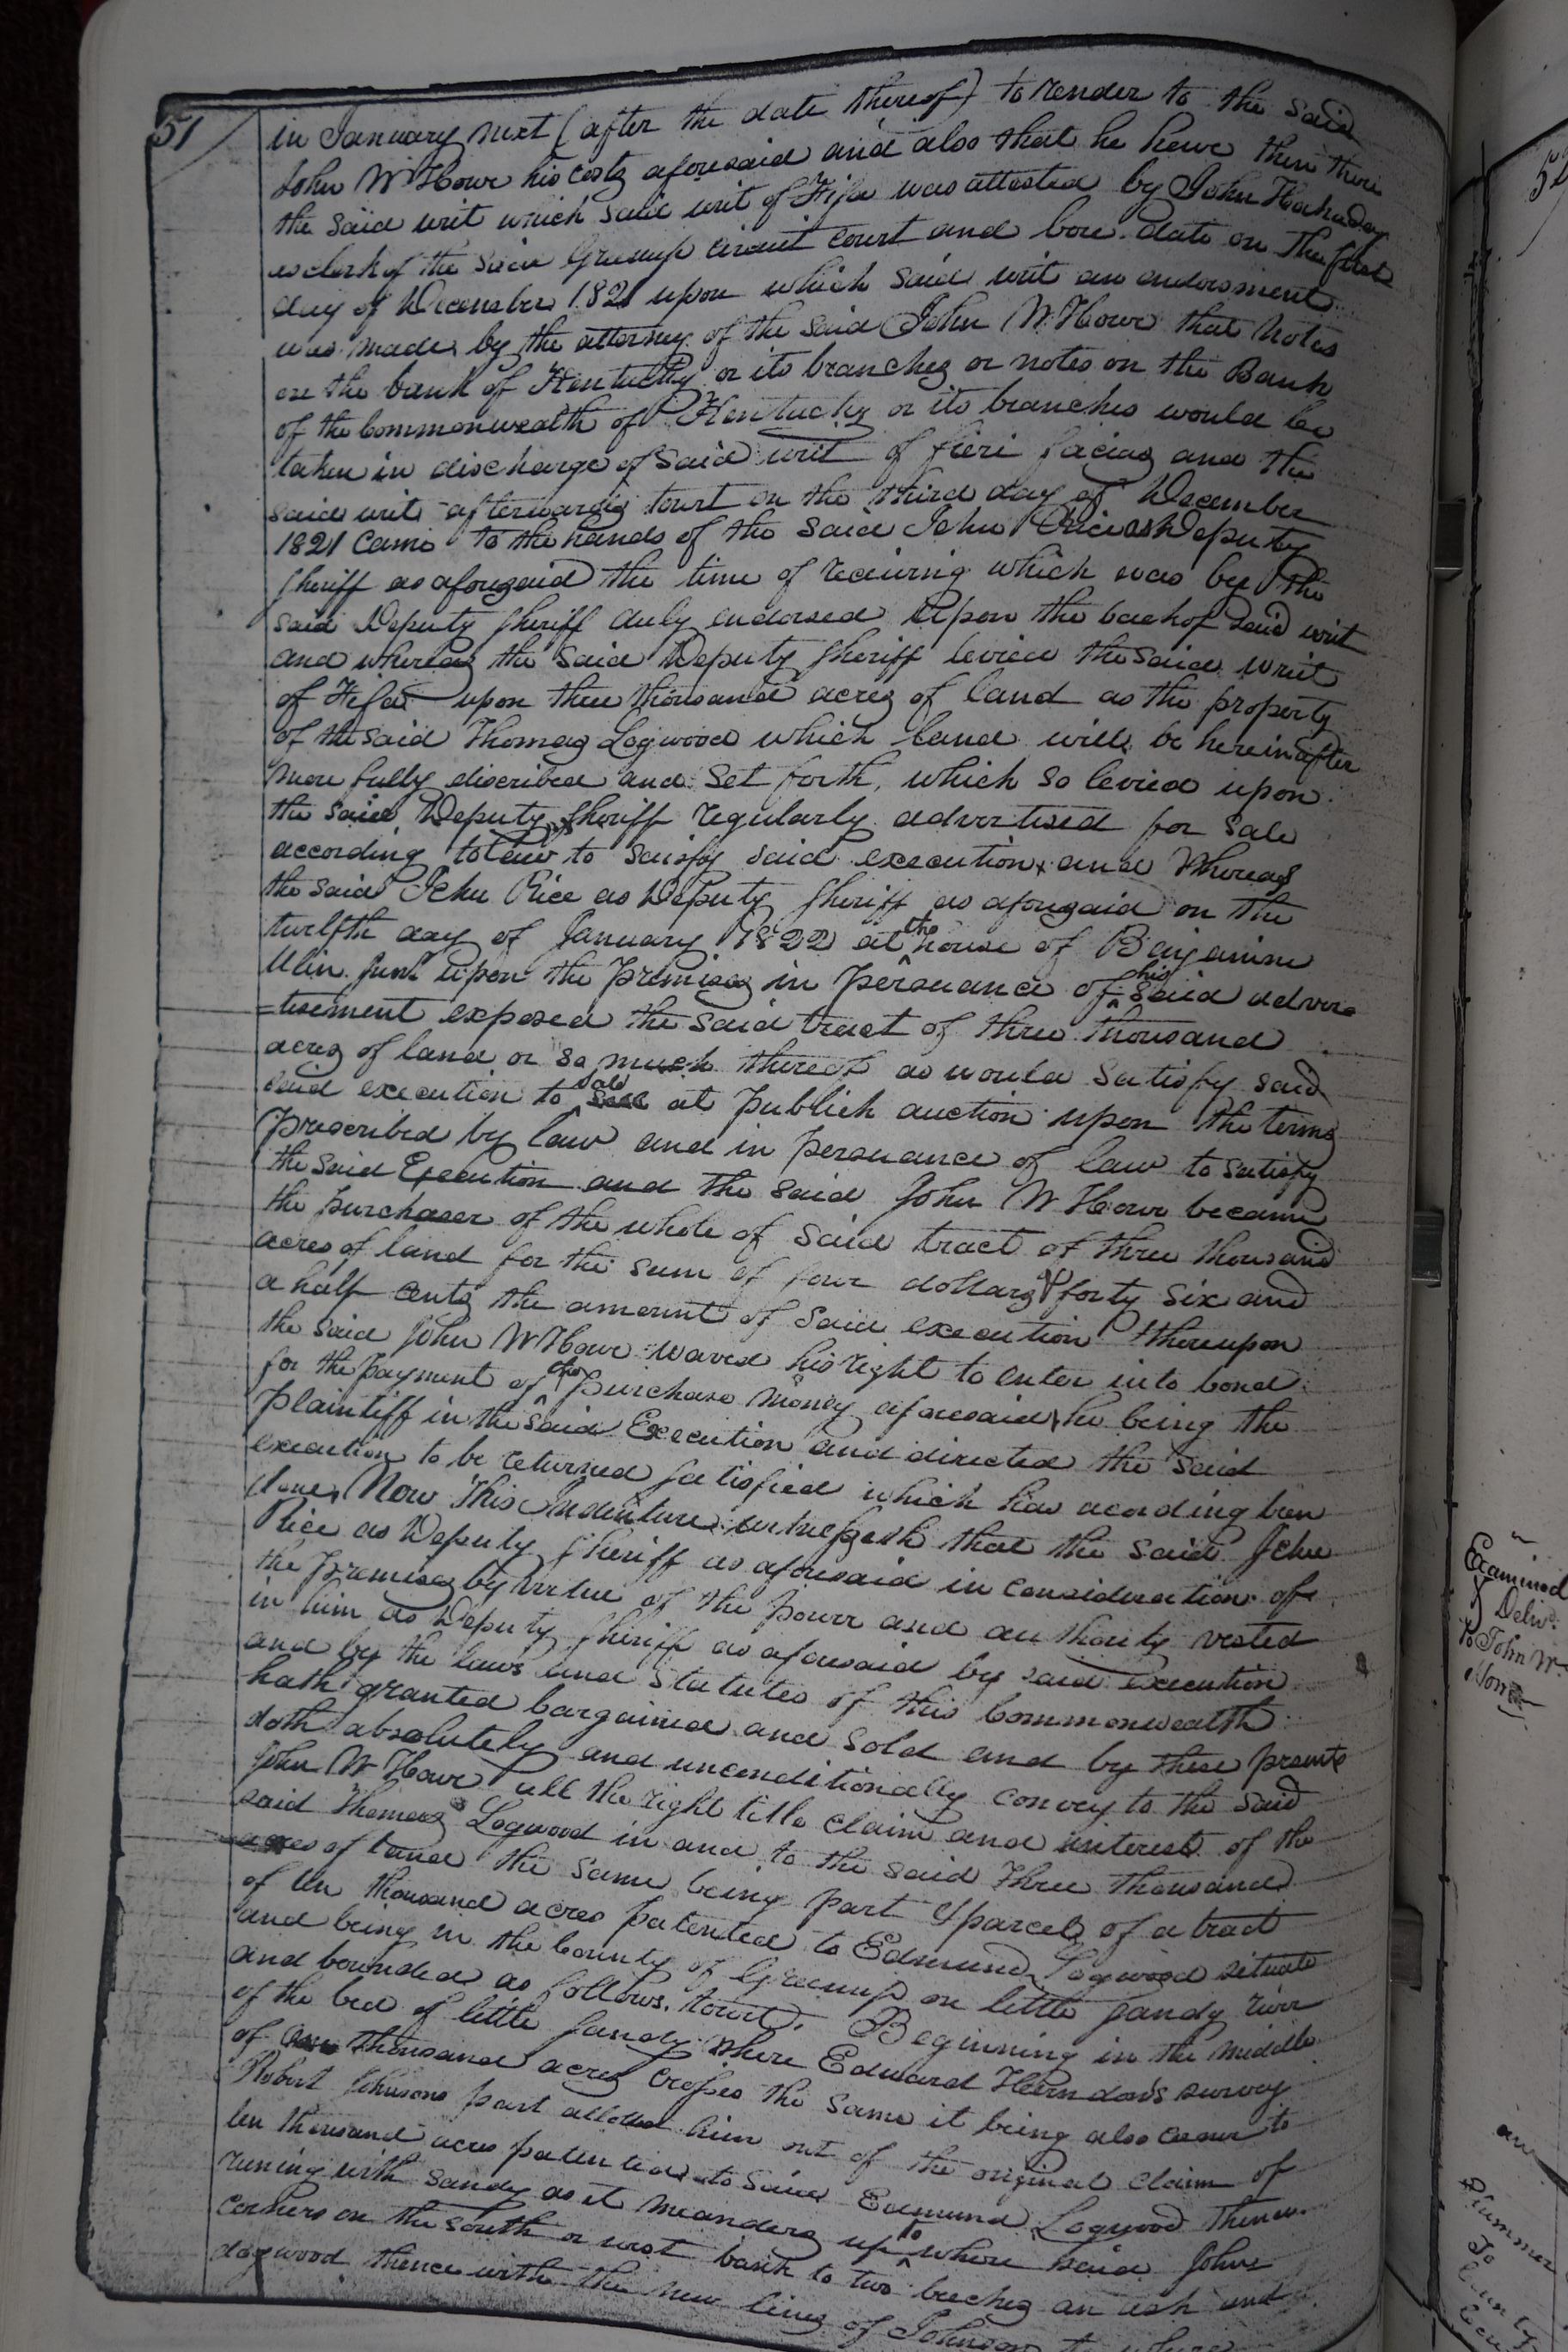 51
in January next (after the date thereof) to render to the said
John W Howe his costs aforesaid and also that he have then there
the said writ which said writ of Fifa was attested by John Hockaday
as clerk of the said Greenup circuit court and bore date on the first
day of December 1821 upon which said writ an endorsment
was made by the attorney of the said John W. Howe that notes
on the bank of Kentucky or its branches or notes on the Bank
of the Commonwealth of Kentucky or its branches would be
taken in discharge of said writ of fieri facias and the
said writ afterwards towit on the third day of December
1821 came to the hands of the said John Rice as Deputy
Sheriff as afougaid the time of receiving which was by the
said Deputy Sheriff duly endorsed upon the back of said writ
and whereas the said Deputy Sheriff levied the said writ
of Fifa upon three thousand acres of land as the property
of the said Thomas Logwood which land will be hereinafter
more fully discribed and set forth, which so levied upon
the said Deputy Sheriff regularly advertised for sale
according to law to satisfy said execution, and Whereas
the said John Rice as Deputy Sheriff as afougaid on the
twelfth day of January 1822 at the house of Benjamine
Ulin Junr upon the premises in persuance of his said adver
=tisement exposed the said tract of three thousand
acres of land or so much thereof as would satisfy said
said execution to sale at publick auction upon the terms
prescribed by law and in persuance of law to satisfy
the said Execution and the said John W Howe became
the purchaser of the whole of said tract of three thousand
acres of land for the sum of four dollars & forty six and
a half cents the amount of said execution thereupon
the said John W Howe waved his right to enter into bond
for the payment of the purchase money aforesaid, he being the
plaintiff in the said Execution and directed the said
execution to be returned satisfied which has acording been
done, Now This Indenture witnesseth that the said John
Rice as Deputy Sheriff as aforesaid in consideration of
the premises by virtue of the power and authority vested
in him as Deputy Sheriff as aforesaid by said execution
and by the laws and Statutes of this Commonwealth
hath granted bargained and sold and by these presents
doth absolutely and unconditionally convey to the said
John W Howe all the right title claim and interest of the
said Thomas Logwood in and to the said three thousand
acres of land the same being part & parcel of a tract
of ten thousand acres patented to Edmund Logwood situate
and being in the County of Greenup on little sandy river
and bounded as follows. towit. Beginning in the middle
of the bed of little sandy where Edward Herndons survey
of thousand acres crosses the same it being also corner to
Robert Johnsons part alloted him out of the original claim of
ten thousand acres patented to said Edmund Logwood Thence
runing with sandy as it meanders up to where said Johns
corners on the south or west bank to two beeches an ash and
dogwood thence with the new lines of Johnson to where
52
Examined
& Delivd.
To John W.
To